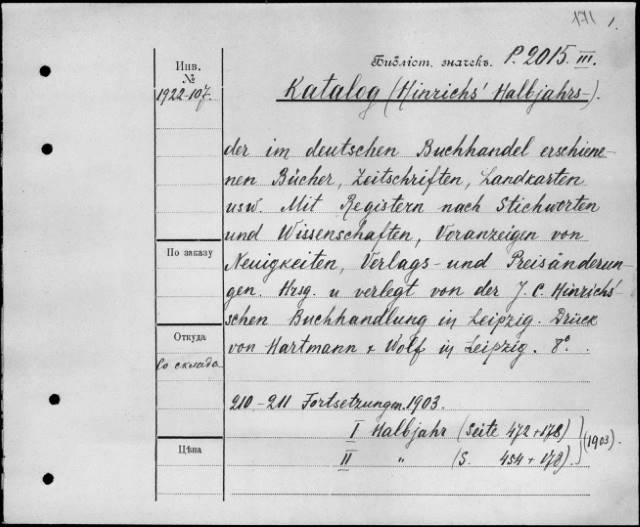 171 1.
Инв.
№
1922-107.
Библіот. значекъ. P. 2015. III.
Katalog (Hinrichs' Halbjahrs-).
der im deutschen Buchhandel erschiene-
nen Bücher, Zeitschriften, Landkarten
usw. Mit Registern nach Stichworten
und Wissenschaften, Voranzeigen von
Neuigkeiten, Verlags- und Preisänderun-
gen. Hrsg. u verlegt von der J. C. Hinrichs'
schen Buchhandlung in Leipzig. Druck
von Hartmann & Wolf in Leipzig. 8°.
По заказу
Откуда
Со склада
Цѣна
210-211 Fortsetzungen. 1903.
I Halbjahr (Seite 472+178)
II " (S. 454+178). (1903).